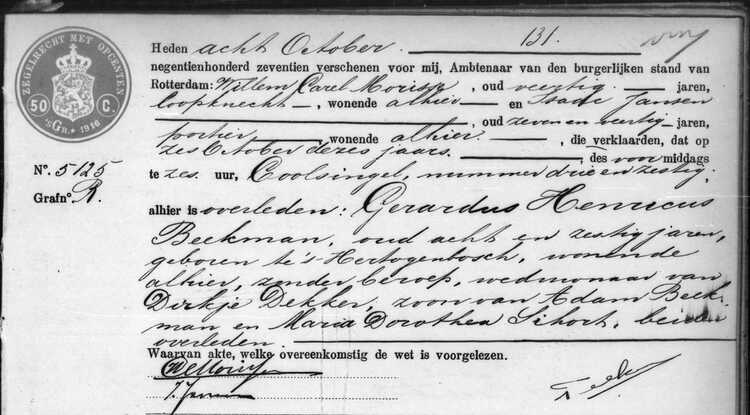 ZEGELRECHT MET OPCENTEN
50 C.
'sGR. * 1916
131.
Heden acht October.
negentienhonderd zeventien verschenen voor mij, Ambtenaar van den burgerlijken stand van
Rotterdam: Willem Carel Morisse, oud veertig jaren,
loopknecht, wonende alhier en Isaac Jansen
, oud zeven en veertig jaren,
portier, wonende alhier, die verklaarden, dat op
zes October dezes jaars, des voormiddags
te zes uur, Coolsingel, nummer drie en zestig,
alhier is overleden: Gerardus Henricus
Beekman, oud acht en zestig jaren,
geboren te 's-Hertogenbosch, wonende
alhier, zonder beroep, weduwnaar van
Dirkje Dekker, zoon van Adam Beek-
man en Maria Dorothea Schort, beiden
overleden.
Waarvan akte, welke overeenkomstig de wet is voorgelezen.
No. 5125
Grafno. R.